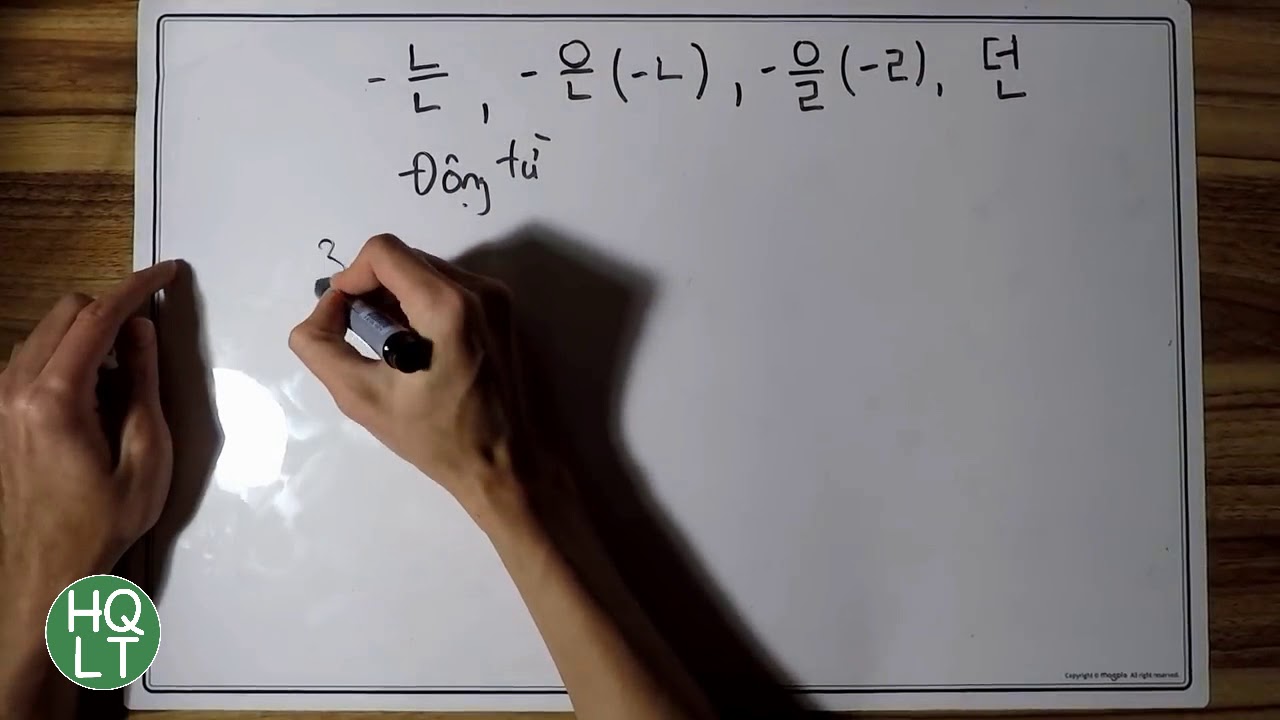 -는, -은(-ㄴ), -을(-ㄹ), 던
Động từ
HQ
LT
Copyright © magpie All right reserved.